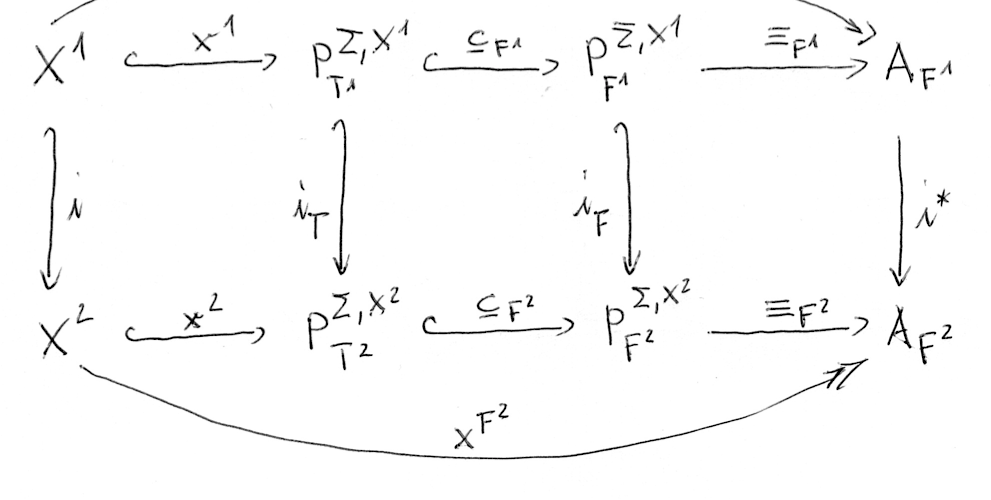 X¹ x¹ P_{T¹}^{Σ,X¹} ⊆_{F¹} P_{F¹}^{Σ,X¹} ≡_{F¹} A_{F¹}
i i_T i_F i*
X² x² P_{T²}^{Σ,X²} ⊆_{F²} P_{F²}^{Σ,X²} ≡_{F²} A_{F²}
x^{F²}